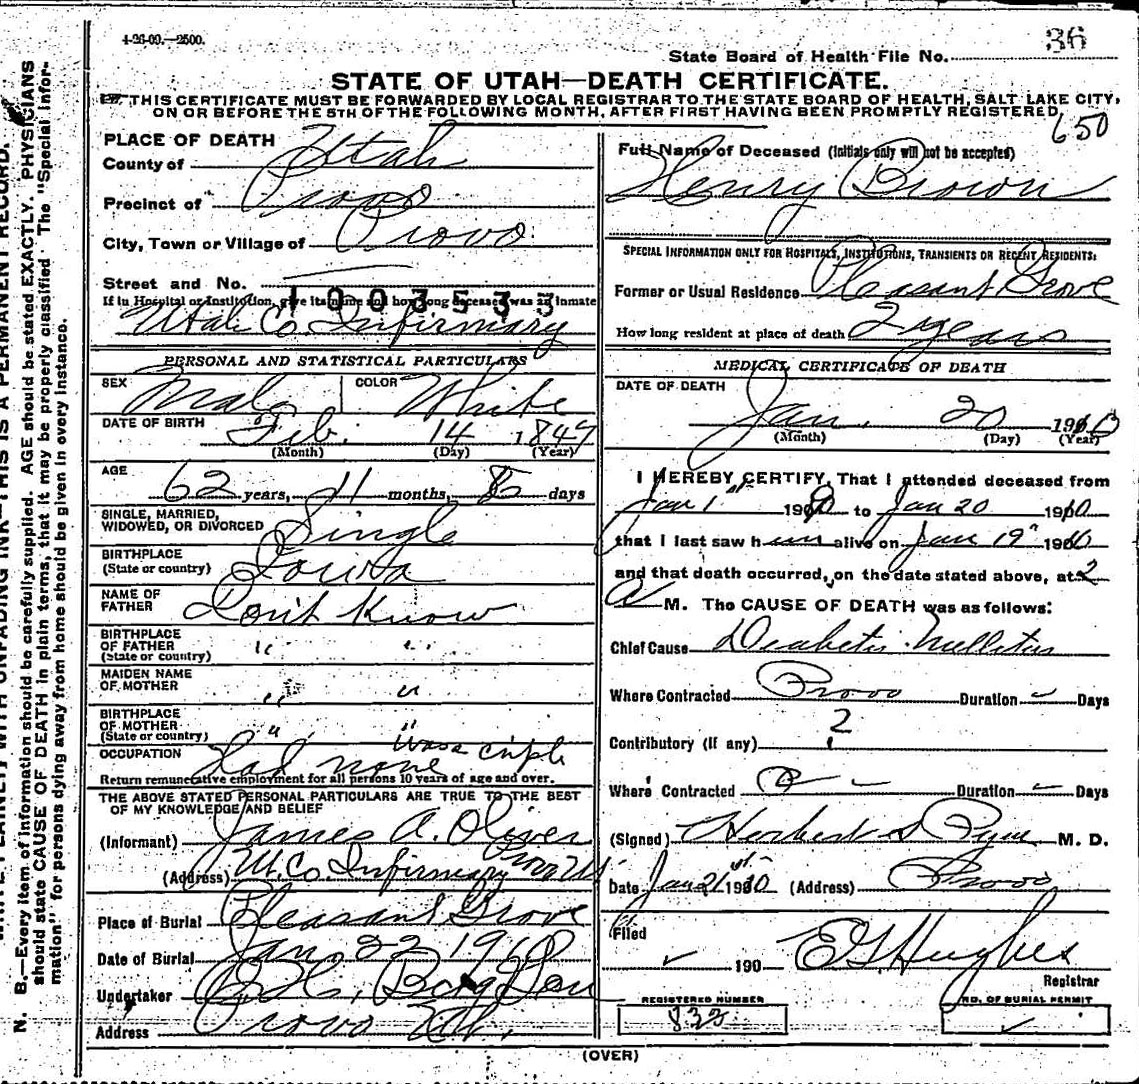 4-26-09.—2500.
State Board of Health File No. 36
STATE OF UTAH—DEATH CERTIFICATE.
THIS CERTIFICATE MUST BE FORWARDED BY LOCAL REGISTRAR TO THE STATE BOARD OF HEALTH, SALT LAKE CITY,
ON OR BEFORE THE 5TH OF THE FOLLOWING MONTH, AFTER FIRST HAVING BEEN PROMPTLY REGISTERED.
650
PLACE OF DEATH
County of Utah
Precinct of Provo
City, Town or Village of Provo.
Street and No.
If in Hospital or Institution, give its name and how long deceased was an inmate
1003535
Utah Co Infirmary
PERSONAL AND STATISTICAL PARTICULARS
SEX Male COLOR White
DATE OF BIRTH Feb. 14 1847
(Month) (Day) (Year)
AGE 62 years, 11 months, days
SINGLE, MARRIED,
WIDOWED, OR DIVORCED Single
BIRTHPLACE
(State or country) Iowa
NAME OF
FATHER Don't Know
BIRTHPLACE
OF FATHER " "
(State or country)
MAIDEN NAME
OF MOTHER " "
BIRTHPLACE
OF MOTHER " "
(State or country)
OCCUPATION Had none was a criple
Return remunerative employment for all persons 10 years of age and over.
THE ABOVE STATED PERSONAL PARTICULARS ARE TRUE TO THE BEST
OF MY KNOWLEDGE AND BELIEF
(Informant) James A. Oliver
(Address) U. Co. Infirmary Provo Ut
Place of Burial Pleasant Grove
Date of Burial Jan 22 1910
Undertaker
Address Provo Utah.
Full Name of Deceased (Initials only will not be accepted)
Henry Brown
SPECIAL INFORMATION ONLY FOR HOSPITALS, INSTITUTIONS, TRANSIENTS OR RECENT RESIDENTS:
Former or Usual Residence Pleasant Grove
How long resident at place of death 2 years
MEDICAL CERTIFICATE OF DEATH
DATE OF DEATH
Jan. 20 1910
(Month) (Day) (Year)
I HEREBY CERTIFY, That I attended deceased from
Jan 1st 190 to Jan 20 1910
that I last saw him alive on Jan 19" 1910
and that death occurred, on the date stated above, at 2
A M. The CAUSE OF DEATH was as follows:
Chief Cause Diabetis Mellitus
Where Contracted Provo Duration Days
2
Contributory (if any)
Where Contracted Duration Days
(Signed) Herbert S Pyne M. D.
Date Jan 21st 1910 (Address) Provo
Filed
190 E G Hughes
Registrar
REGISTERED NUMBER
832
NO. OF BURIAL PERMIT
(OVER)
N. B.—Every item of information should be carefully supplied. AGE should be stated EXACTLY. PHYSICIANS
should state CAUSE OF DEATH in plain terms, that it may be properly classified. The "Special Infor-
mation" for persons dying away from home should be given in every instance.
WRITE PLAINLY WITH UNFADING INK—THIS IS A PERMANENT RECORD.